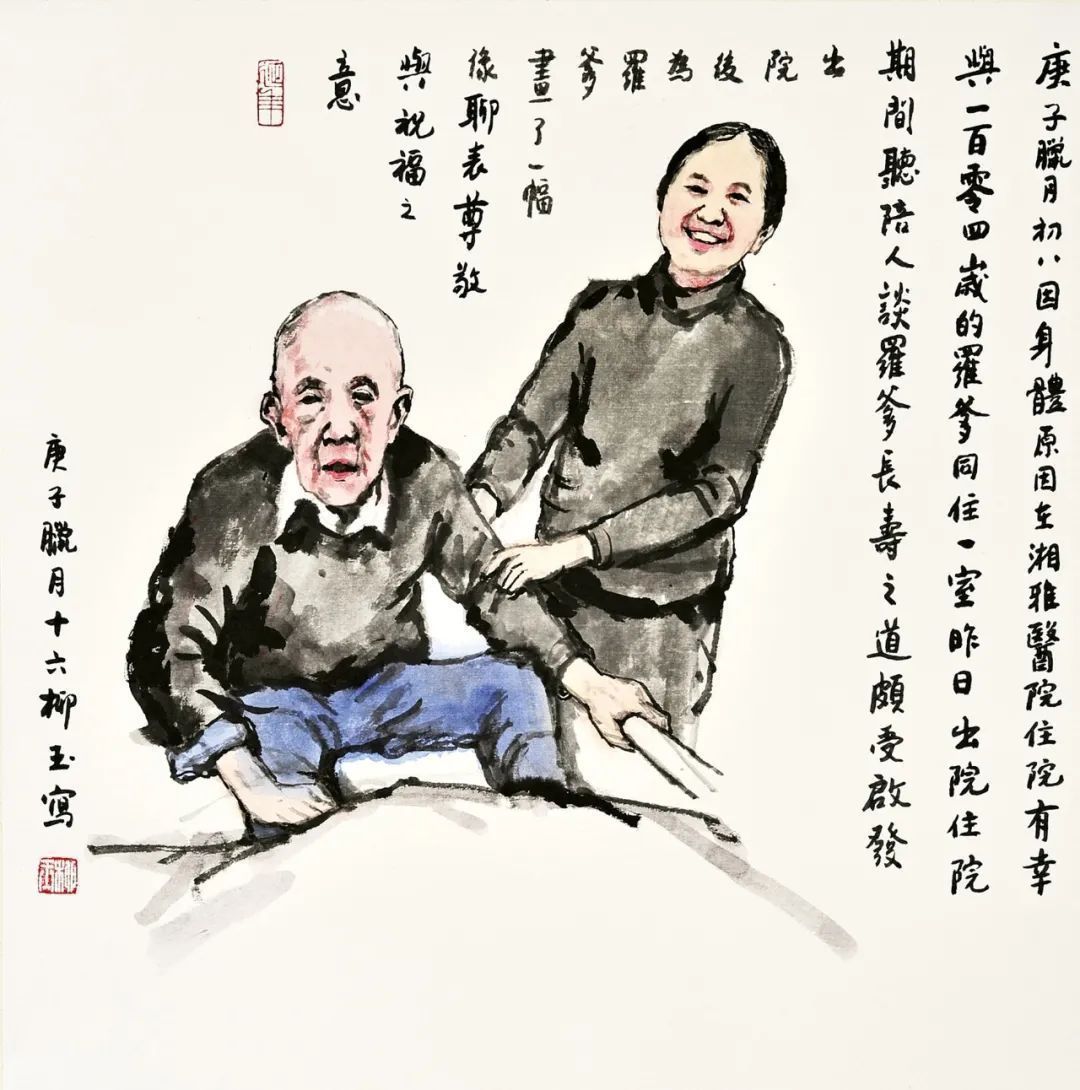 庚子臘月初八因身體原因在湘雅醫院住院有幸
與一百零四歲的羅爹同住一室昨日出院住院
期間聽陪人談羅爹長壽之道頗受啟發
出
院
後
為
羅
爹
畫了一幅
像聊表尊敬
與祝福之
意
庚子臘月十六柳玉寫
柳玉